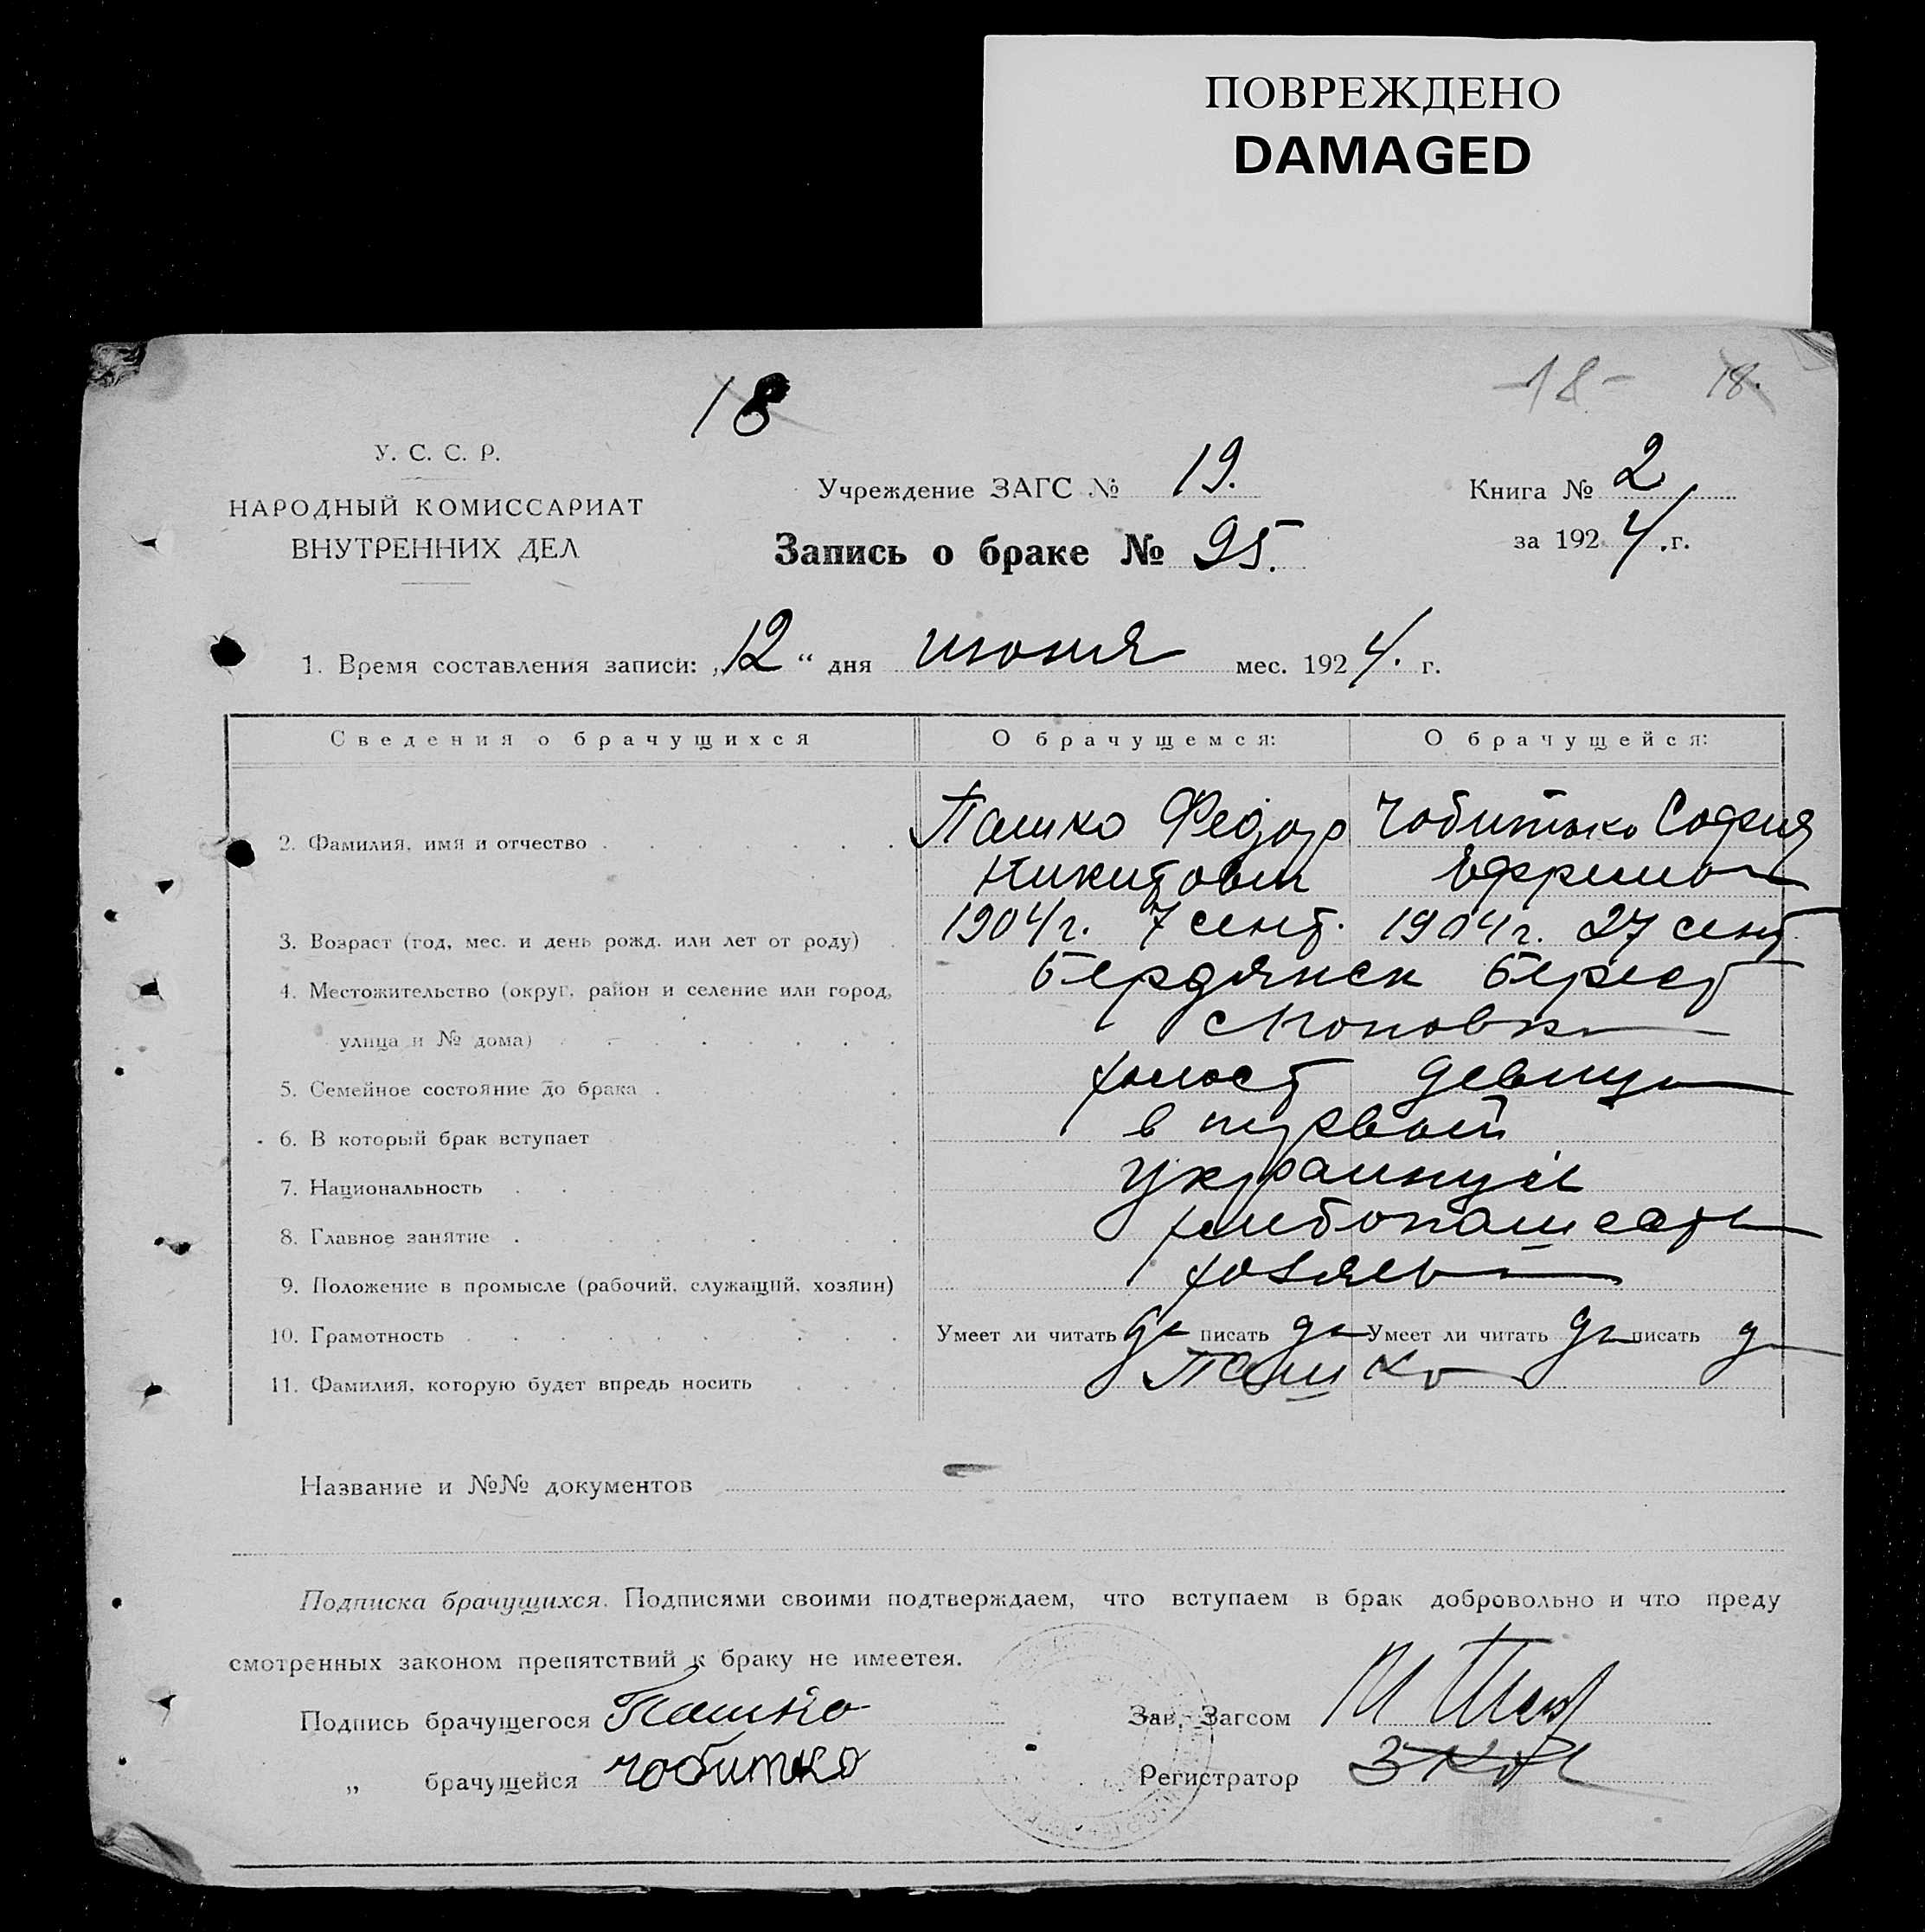 ПОВРЕЖДЕНО
DAMAGED
18
-18-
18.
У. С. С. Р.
НАРОДНЫЙ КОМИССАРИАТ
ВНУТРЕННИХ ДЕЛ
Учреждение ЗАГС № 19.
Книга № 2
за 1924.г.
Запись о браке № 95.
1. Время составления записи: „12“ дня июня мес. 1924. г.
Сведения о брачущихся О брачущемся: О брачущейся:
2. Фамилия, имя и отчество Пашко Федор Чобитько София
Никитович Ефримовн
3. Возраст (год, мес. и день рожд. или лет от роду) 1904г. 7 сент. 1904г. 27 сент
4. Местожительство (округ, район и селение или город, Бердянск Берест
улица и № дома)
5. Семейное состояние до брака холост девица
6. В который брак вступает в первый
7. Национальность украинцы
8. Главное занятие хлебопашество
9. Положение в промысле (рабочий, служащий, хозяин) хозяева
10. Грамотность Умеет ли читать да писать да Умеет ли читать да писать д
11. Фамилия, которую будет впредь носить Пашко
Название и №№ документов
Подписка брачущихся. Подписями своими подтверждаем, что вступаем в брак добровольно и что преду
смотренных законом препятствий к браку не имеетея.
Подпись брачущегося Пашко Зав. Загсом
„ брачущейся Чобитко Регистратор